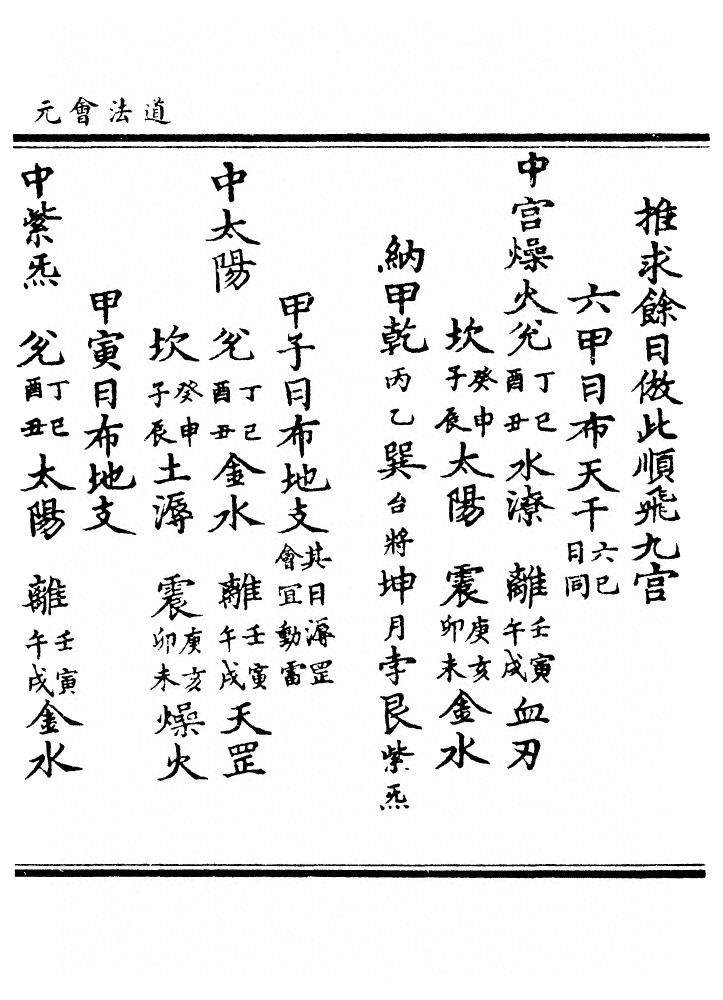 道法會元
推求餘日倣此順飛九宫
六甲日布天干六己日同
中宫燥火兊丁巳酉丑水潦 離壬寅午戌血刃
坎癸申子辰太陽 震庚亥卯未金水
納甲乾丙乙巽台將坤月孛艮紫炁
甲子日布地支其日溽罡會宜動雷
中太陽 兊丁巳酉丑金水 離壬寅午戌天罡
坎癸申子辰土溽 震庚亥卯未燥火
甲寅日布地支
中紫炁 兊丁巳酉丑太陽 離壬寅午戌金水